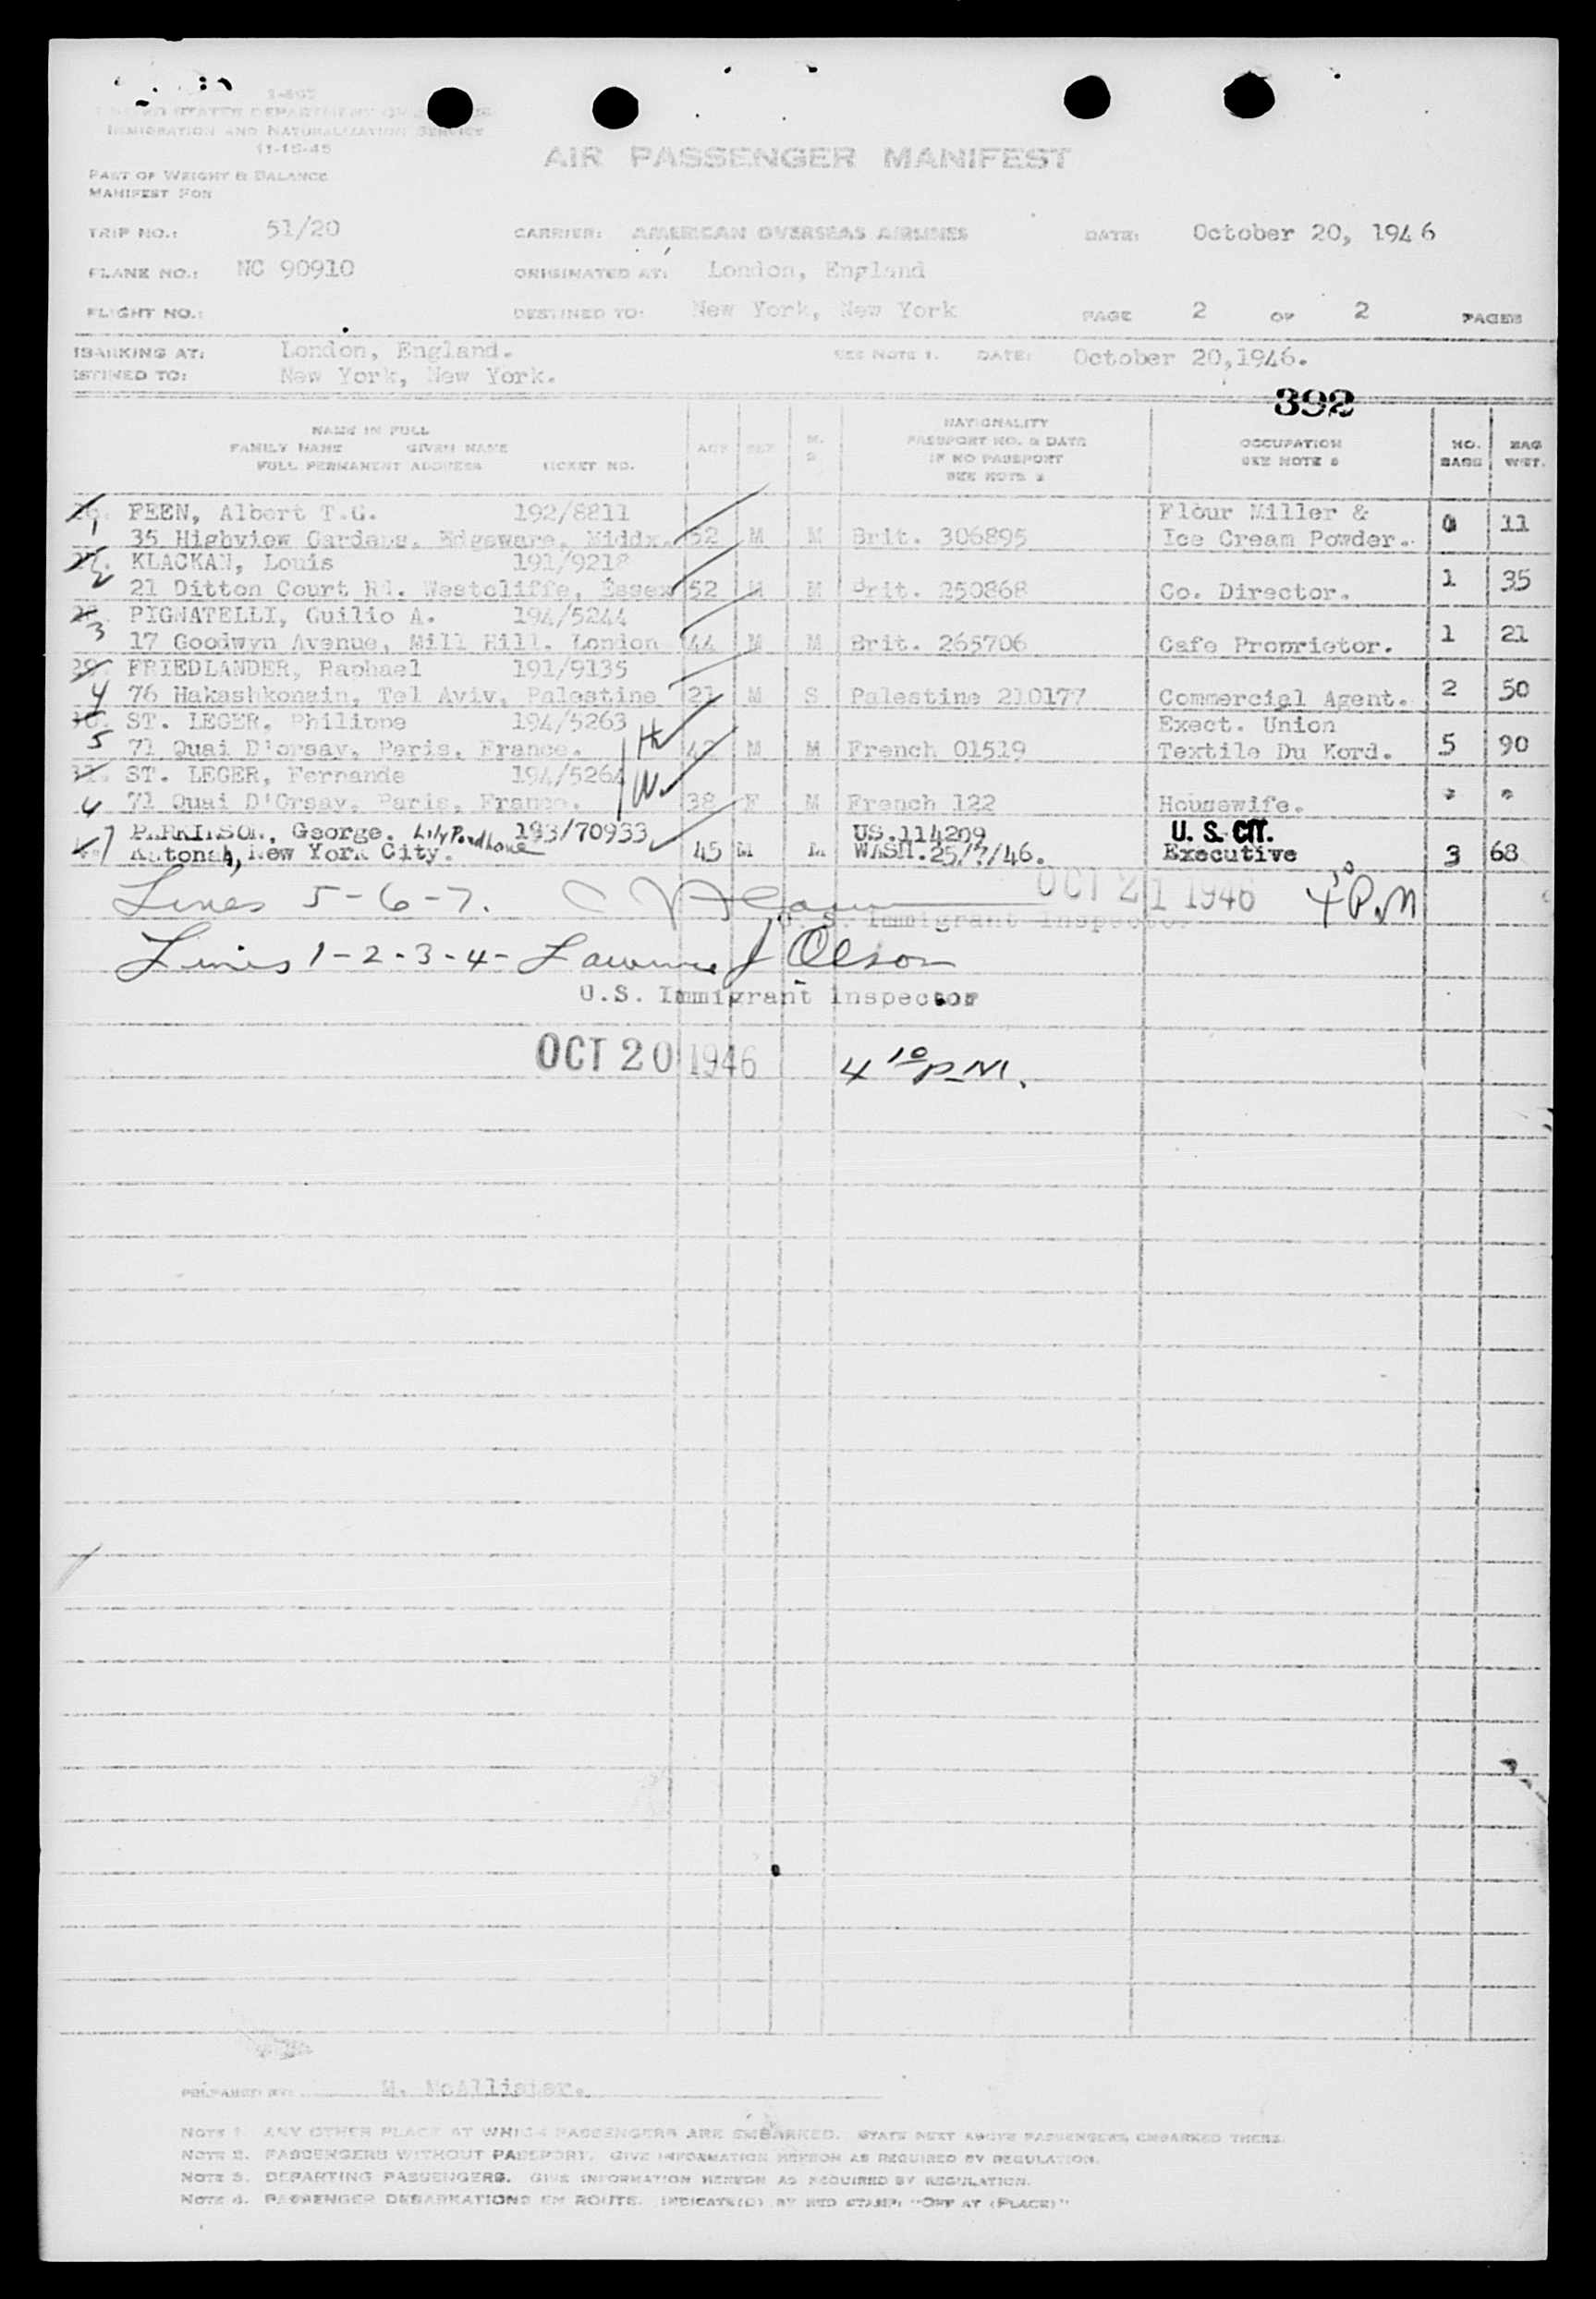 I-466
UNITED STATES DEPARTMENT OF JUSTICE
IMMIGRATION AND NATURALIZATION SERVICE
11-15-45
AIR PASSENGER MANIFEST
PART OF WEIGHT & BALANCE
MANIFEST FOR
TRIP NO.: 51/20 CARRIER: AMERICAN OVERSEAS AIRLINES DATE: October 20, 1946
PLANE NO.: NC 90910 ORIGINATED AT: London, England
FLIGHT NO.: DESTINED TO: New York, New York PAGE 2 OF 2 PAGES
EMBARKING AT: London, England. SEE NOTE 1. DATE: October 20,1946.
DESTINED TO: New York, New York.
392
NAME IN FULL
FAMILY NAME GIVEN NAME
FULL PERMANENT ADDRESS TICKET NO.
AGE SEX M. S
NATIONALITY
PASSPORT NO. & DATE
IF NO PASSPORT
SEE NOTE 2
OCCUPATION
SEE NOTE 3
NO. BAGS
BAG WGT.
1 FEEN, Albert T.G. 192/8811 Flour Miller &
35 Highview Gardens, Edgeware, Middx. 52 M M Brit. 306895 Ice Cream Powder. 0 11
2 KLACKAN, Louis 191/9218
21 Ditton Court Rd. Westcliffe, Essex 52 M M Brit. 250868 Co. Director. 1 35
3 PIGNATELLI, Guilio A. 194/5244
17 Goodwyn Avenue, Mill Hill. London 44 M M Brit. 265706 Cafe Proprietor. 1 21
29. FRIEDLANDER, Raphael 191/9135
4 76 Hakashkonain, Tel Aviv, Palestine 21 M S Palestine 210177 Commercial Agent. 2 50
30. ST. LEGER, Philippe 194/5263 H Exect. Union
5 71 Quai D'orsay, Paris, France. 42 M M French 01519 Textile Du Nord. 5 90
31. ST. LEGER, Fernande 194/5264 W
71 Quai D'Orsay, Paris, France. 38 F M French 122 Housewife. " "
7 PARKINSON, George. Lily Pond Lane 193/70933 US.114209 U. S. CIT.
Katonah, New York City. 45 M M WASH.25/7/46. Executive 3 68
Lines 5-6-7. OCT 21 1946 4 30 P.M
U. S. Immigrant Inspector
Lines 1-2-3-4- Lawrence J Olson
U.S. Immigrant Inspector
OCT 20 1946 4 10 P.M.
PREPARED BY: M. McAllister.
NOTE 1. ANY OTHER PLACE AT WHICH PASSENGERS ARE EMBARKED. STATE NEXT ABOVE PASSENGERS EMBARKED THERE.
NOTE 2. PASSENGERS WITHOUT PASSPORT. GIVE INFORMATION HEREON AS REQUIRED BY REGULATION.
NOTE 3. DEPARTING PASSENGERS. GIVE INFORMATION HEREON AS REQUIRED BY REGULATION.
NOTE 4. PASSENGER DEBARKATIONS EN ROUTE. INDICATE(D) BY RED STAMP: "OFF AT (PLACE)"